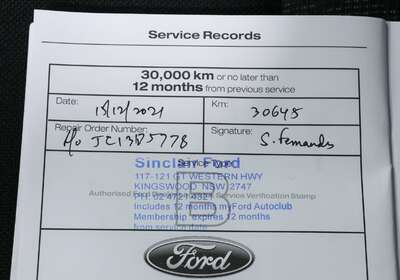 Service Records
30,000 km or no later than
12 months from previous service
Date: 15/12/2021 Km: 30645
Repair Order Number: Signature: S. Fernandes
Sinclair Ford
Service Type:
117-121 GT WESTERN HWY
Authorised Ford Service Verification Stamp
KINGSWOOD NSW 2747
PH: 02 4721 4321
B
Includes 12 months myFord Autoclub
Membership expires 12 months
from service date
Ford